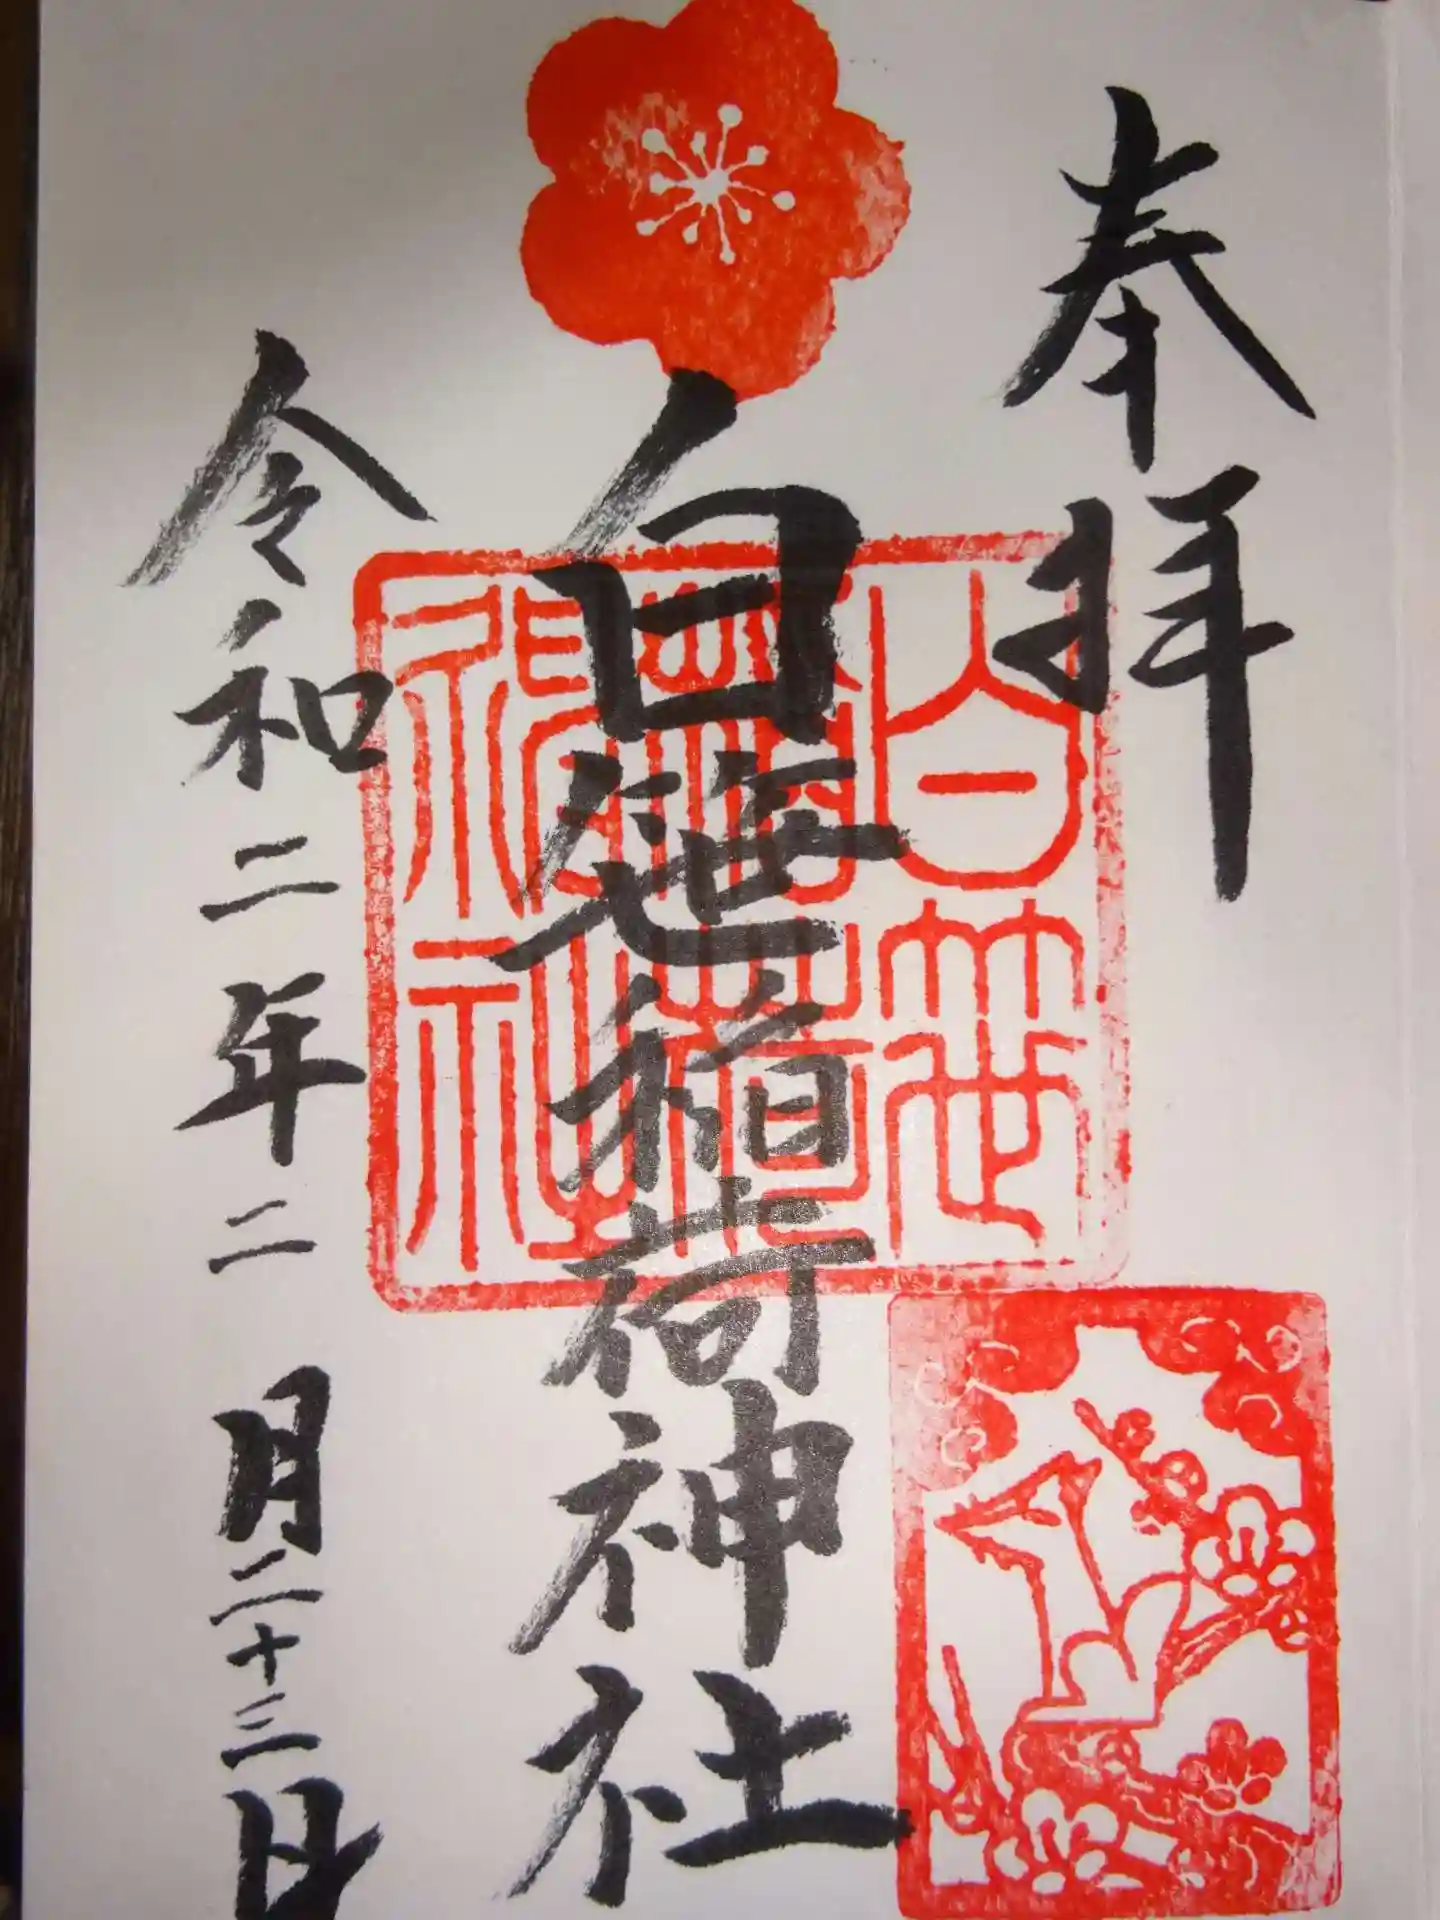 奉拝
白笹稲荷神社
白笹稲荷神社
令和二年二月二十三日